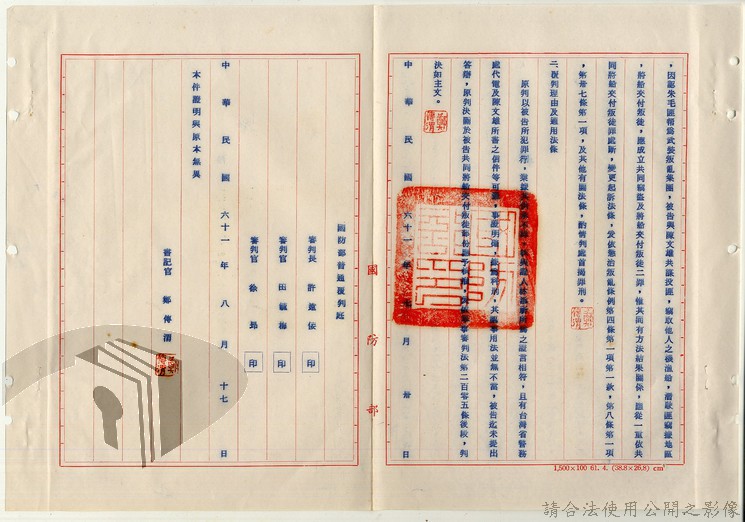 ，因認朱毛匪幫為武裝叛亂集團，被告與陳文雄共謀投匪，竊取他人之機漁船，潛駛匪竊據地區
，將船交付叛徒，應成立共同竊盜及將船交付叛徒二罪，惟其間有方法結果關係，應從一重依共
同將船交付叛徒罪處斷，變更起訴法條，爰依懲治叛亂條例第四條第一項第一款，第八條第一項
，第卅七條第一項，及其他有關法條，酌情判處首揭罪刑。
二、覆判理由及適用法條
原判以被告所犯罪行，業據
之證言相符，且有台灣省警務
處代電及陳文雄所書之信件等可
其
事用法並無不當，被告迄未提出
答辯，原判決關於被告共同將船交付叛徒部份
審判法第二百零五條後段，判
決如主文。
中華民國六十一年
月卅日
國防部
國防部普通覆判庭
審判長 許
審判官 田
梅
審判官 徐昂
印
印
中華民國六十一年八月十七日
本件證明與原本無異
書記官 鄭傳渭
1,500×100 61. 4. (38.8×26.8) cm²
請合法使用公開之影像